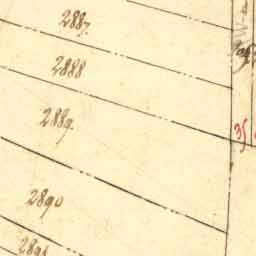 2887.
2888
2889.
35
2890
2891